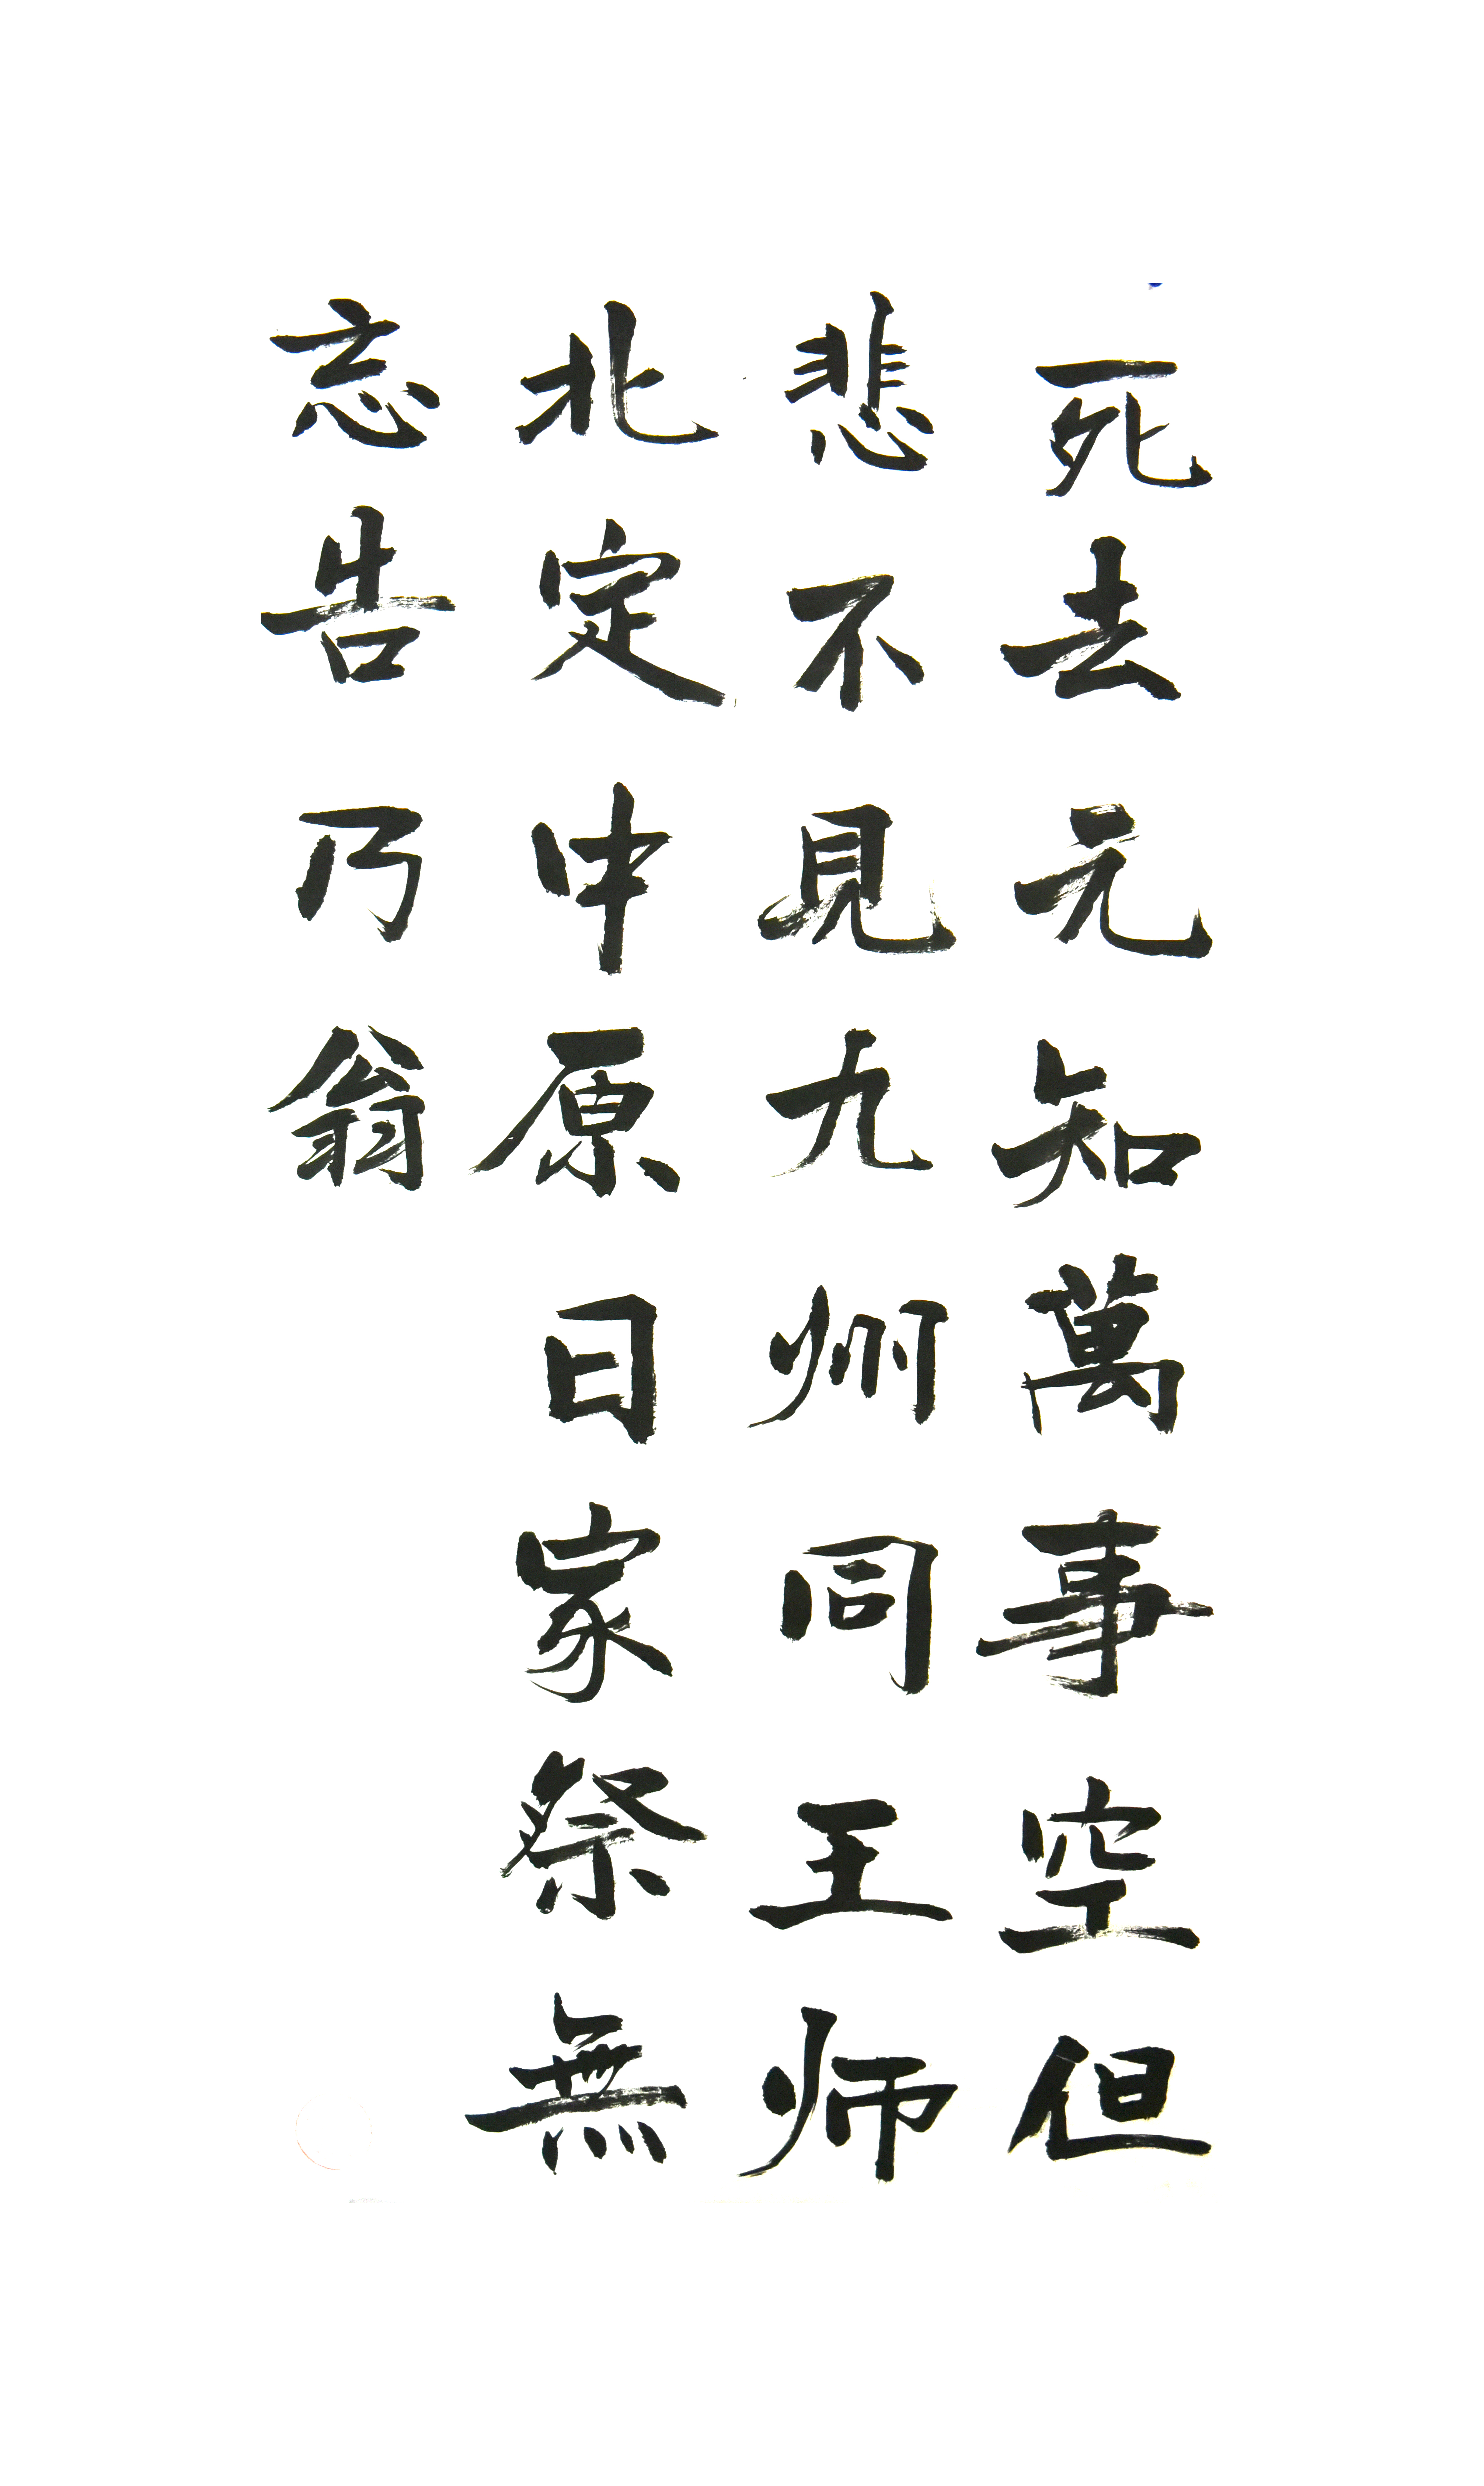 死去元知萬事空但
悲不見九州同王师
北定中原日家祭無
忘告乃翁